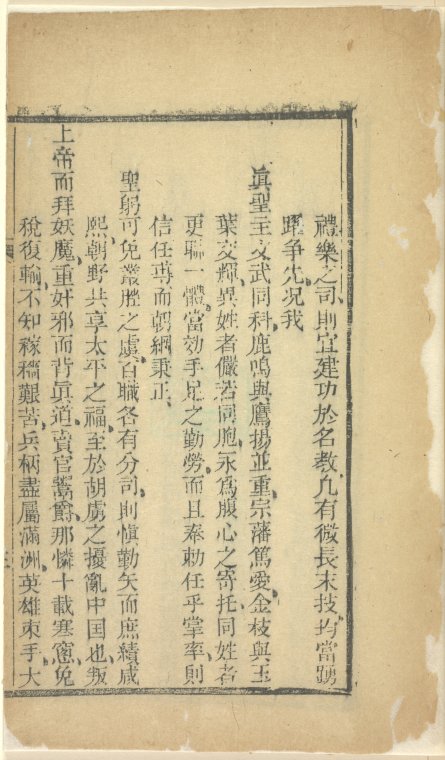 禮樂之司、則宜建功於名教、凡有微長末技、均當踴
躍爭先、況我
眞聖主文武同科、鹿鳴與鷹揚並重、宗藩篤愛、金枝與玉
葉交輝、異姓者儼若同胞、永爲腹心之寄托、同姓者
更聯一體、當効手足之勤勞、而且奉勅任乎掌率、則
信任專而朝綱秉正、
聖躬可免叢脞之虞、百職各有分司、則愼勤矢而庶績咸
熙、朝野共享太平之福、至於胡虜之擾亂中囯也、叛
上帝而拜妖魔、重奸邪而背眞道、賣官鬻爵、那憐十載寒窻、免
稅復輸、不知稼穡艱苦、兵柄盡屬滿洲、英雄束手、大